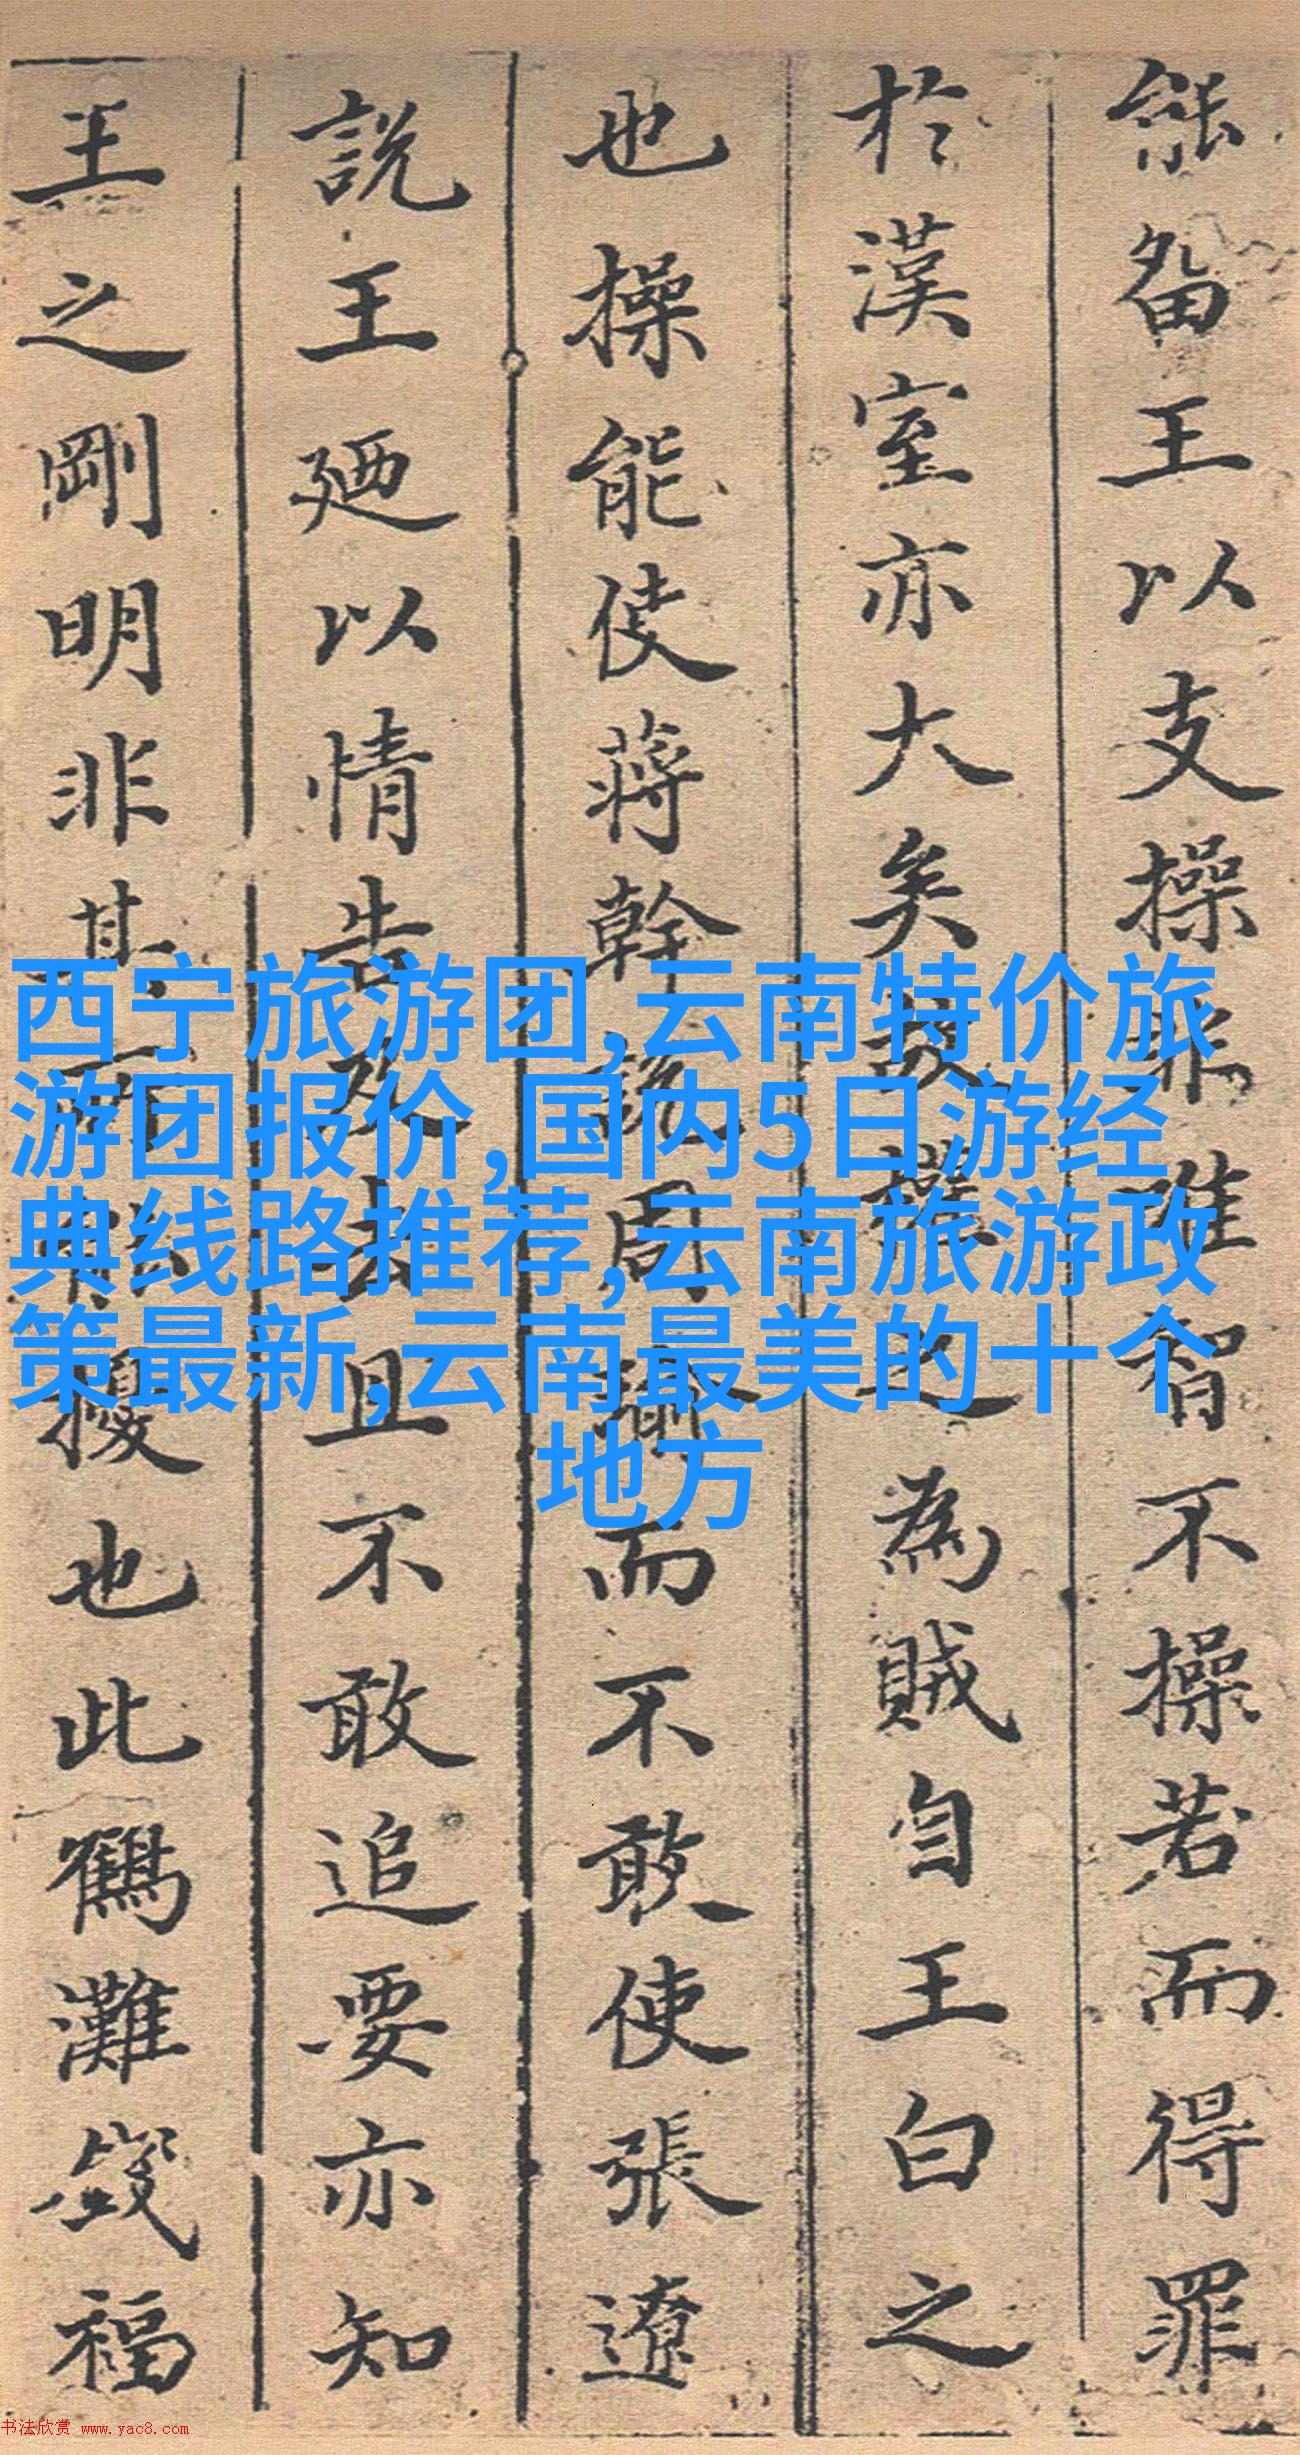 能畱王以支操非惟智不操若而得罪
於漢室亦大矣故操之為賊自王白之
也操能使蔣幹說周瑜而不敢使張遼
說王廼以情告及去且不敢追要亦知
王之剛明非其所能也此鶴灘福
西宁旅游团,云南特价旅
游团报价,国内5日游经
典线路推荐,云南旅游政
策最新,云南最美的十个
地方
书法欣赏 www.yac8.com